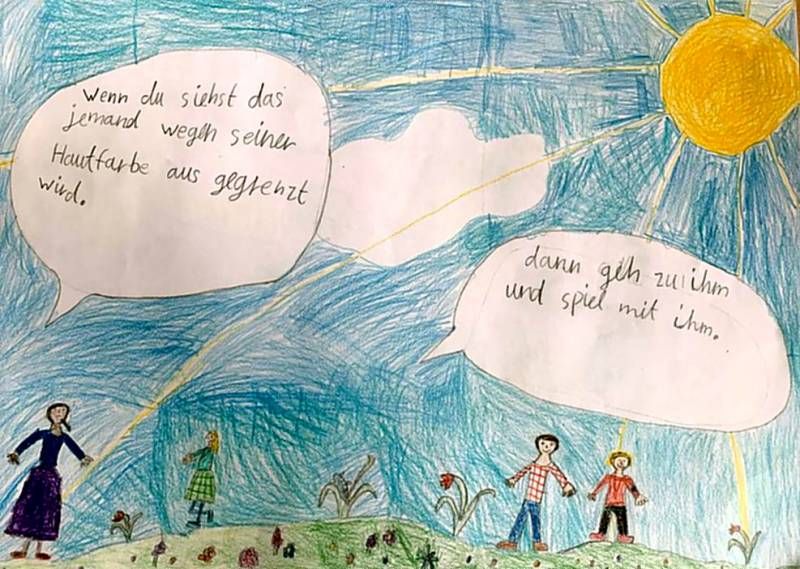 Wenn du siehst das
jemand wegen seiner
Hautfarbe aus gegrenzt
wird.
dann geh zu ihm
und spiel mit ihm.